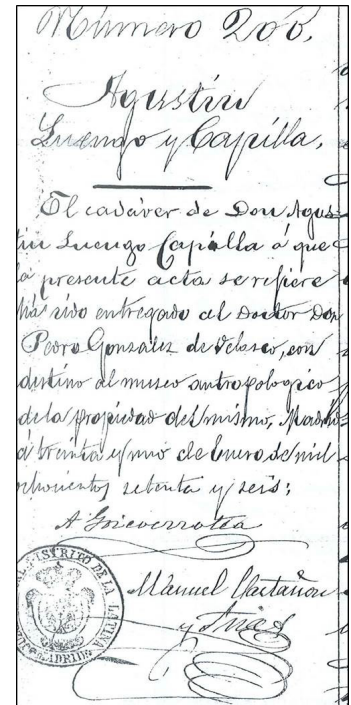 Número 200.
Agustín
Luengo y Capilla.
El cadáver de Don Agus-
tin Luengo Capilla á que
la presente acta se refiere
há sido entregado al Doctor Don
Pedro Gonzalez de Velasco, con
destino al museo antropologico
de la propiedad del mismo, Madrid
á treinta y uno de Enero de mil
ochocientos setenta y seis;
Manuel Castañon
y
DISTRITO DE LA LATINA
MADRID